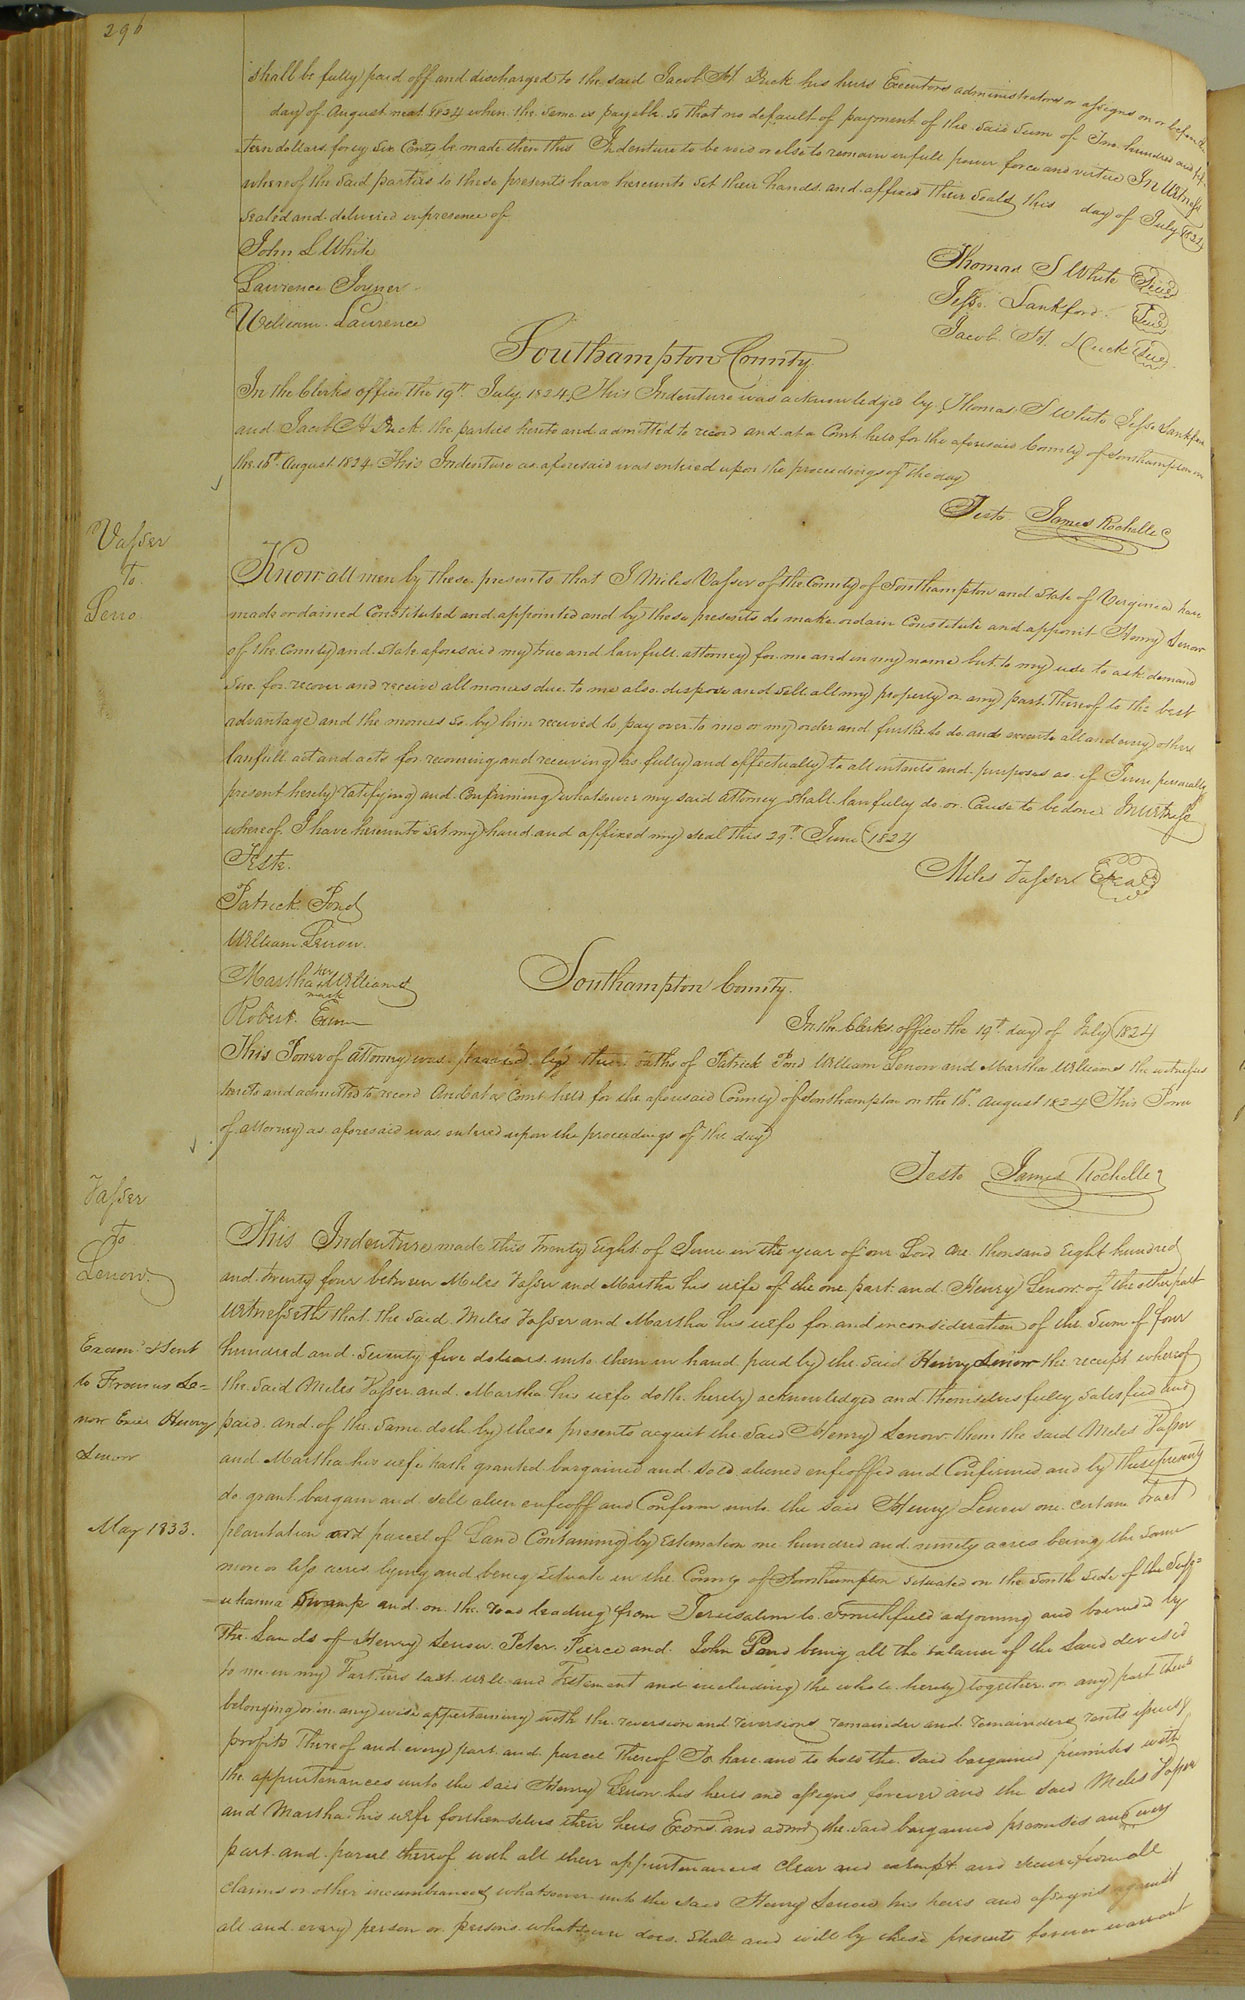 296
shall be fully paid off and discharged to the said Jacob H Duck his heirs Executors administrators or assigns on or before the
day of August next 1824 when the same is payable so that no default of payment of the said Sum of Two hundred and
teen dollars forty Six Cents be made then this Indenture to be void or else to remain in full power force and virtue In Witness
whereof the said parties to these presents have hereunto set their hands and affixed their seals this day of July 1824
Sealed and delivered in presence of
John L White
Lawrence Joyner
William Laurence
Thomas S White Seal
Jesse Lankford Seal
Jacob H Duck Seal
Southampton County
In the Clerks office the 19th July 1824 This Indenture was acknowledged by Thomas S White Jesse Lankford
and Jacob H Duck the parties hereto and admitted to record and at a Court held for the aforesaid County of Southampton on
the 16th August 1824 This Indenture as aforesaid was entered upon the proceedings of the day
Teste James Rochelle C
Vasser
To
Leno
Know all men by these presents that I Miles Vasser of the County of Southampton and State of Virginia have
made ordained Constituted and appointed and by these presents do make ordain Constitute and appoint Henry Lenow
of the County and State aforesaid my true and lawfull attorney for me and in my name but to my use to ask demand
sue for recover and receive all monies due to me also dispose and sell all my property or any part thereof to the best
advantage and the monies so by him received to pay over to me or my order and further to do and execute all and every other
lawfull act and acts for recovering and receiving as fully and effectually to all intents and purposes as if I were personally
present hereby ratifying and Confirming whatsoever my said attorney shall lawfully do or Cause to be done In witness
whereof I have hereunto set my hand and affixed my seal this 29th June 1824
Teste.
Miles Vasser Seal
Patrick Pond
William Lenow
Martha her Williams
mark
Robert Exum
Southampton County.
In the Clerks office the 19th day of July 1824
This Power of attorney was proved by the oaths of Patrick Pond William Lenow and Martha Williams the witnesses
hereto and admitted to record And at a Court held for the aforesaid County of Southampton on the 16th August 1824 This Power
of attorney as aforesaid was entered upon the proceedings of the day
Teste James Rochelle
Vasser
To
Lenow
This Indenture made this twenty Eight of June in the year of our Lord one thousand Eight hundred
and twenty four between Miles Vasser and Martha his wife of the one part and Henry Lenow of the other part
Witnesseth that the said Miles Vasser and Martha his wife for and in consideration of the Sum of four
Exam.d & sent
to Francis Le=
now Exer Henry
Lenow
May 1833.
hundred and Seventy five dollars unto them in hand paid by the said Henry Lenow the receipt whereof
the said Miles Vasser and Martha his wife doth hereby acknowledged and themselves fully satisfied and
paid and of the same doth by these presents acquit the Said Henry Lenow them the said Miles Vasser
and Martha his wife hath granted bargained and sold aliened enfeoffed and Confirmed and by these presents
do grant bargain and sell alien enfeoff and Confirm unto the said Henry Lenow one certain tract
plantation and parcel of Land Containing by Estimation one hundred and ninety acres being the same
more or less acres lying and being Situate in the County of Southampton Situated on the South Side of the
uhanna Swamp and on the road leading from Jerusalem to Smithfield adjoining and bounded by
The Lands of Henry Lenow Peter Pierce and John Pond being all the balance of the Land devised
to me in my Farthers last will and Testement and including the whole hereby together or any part thereto
belonging or in any wise appertaining with the reversion and reversions remainder and remainders rents issues
profits thereof and every part and parcel thereof To have and to hold the said bargained premises with
the appurtenances unto the said Henry Lenow his heirs and assigns forever and the said Miles Vasser
and Martha his wife for themselves their heirs Exors and admrs the said bargained premises and every
part and parcel thereof with all their appurtenances clear and exempt and secure from all
claims or other incumbrances whatsoever unto the said Henry Lenow his heirs and assigns against
all and every person or persons whatsoever does shall and will by these presents forever warrant